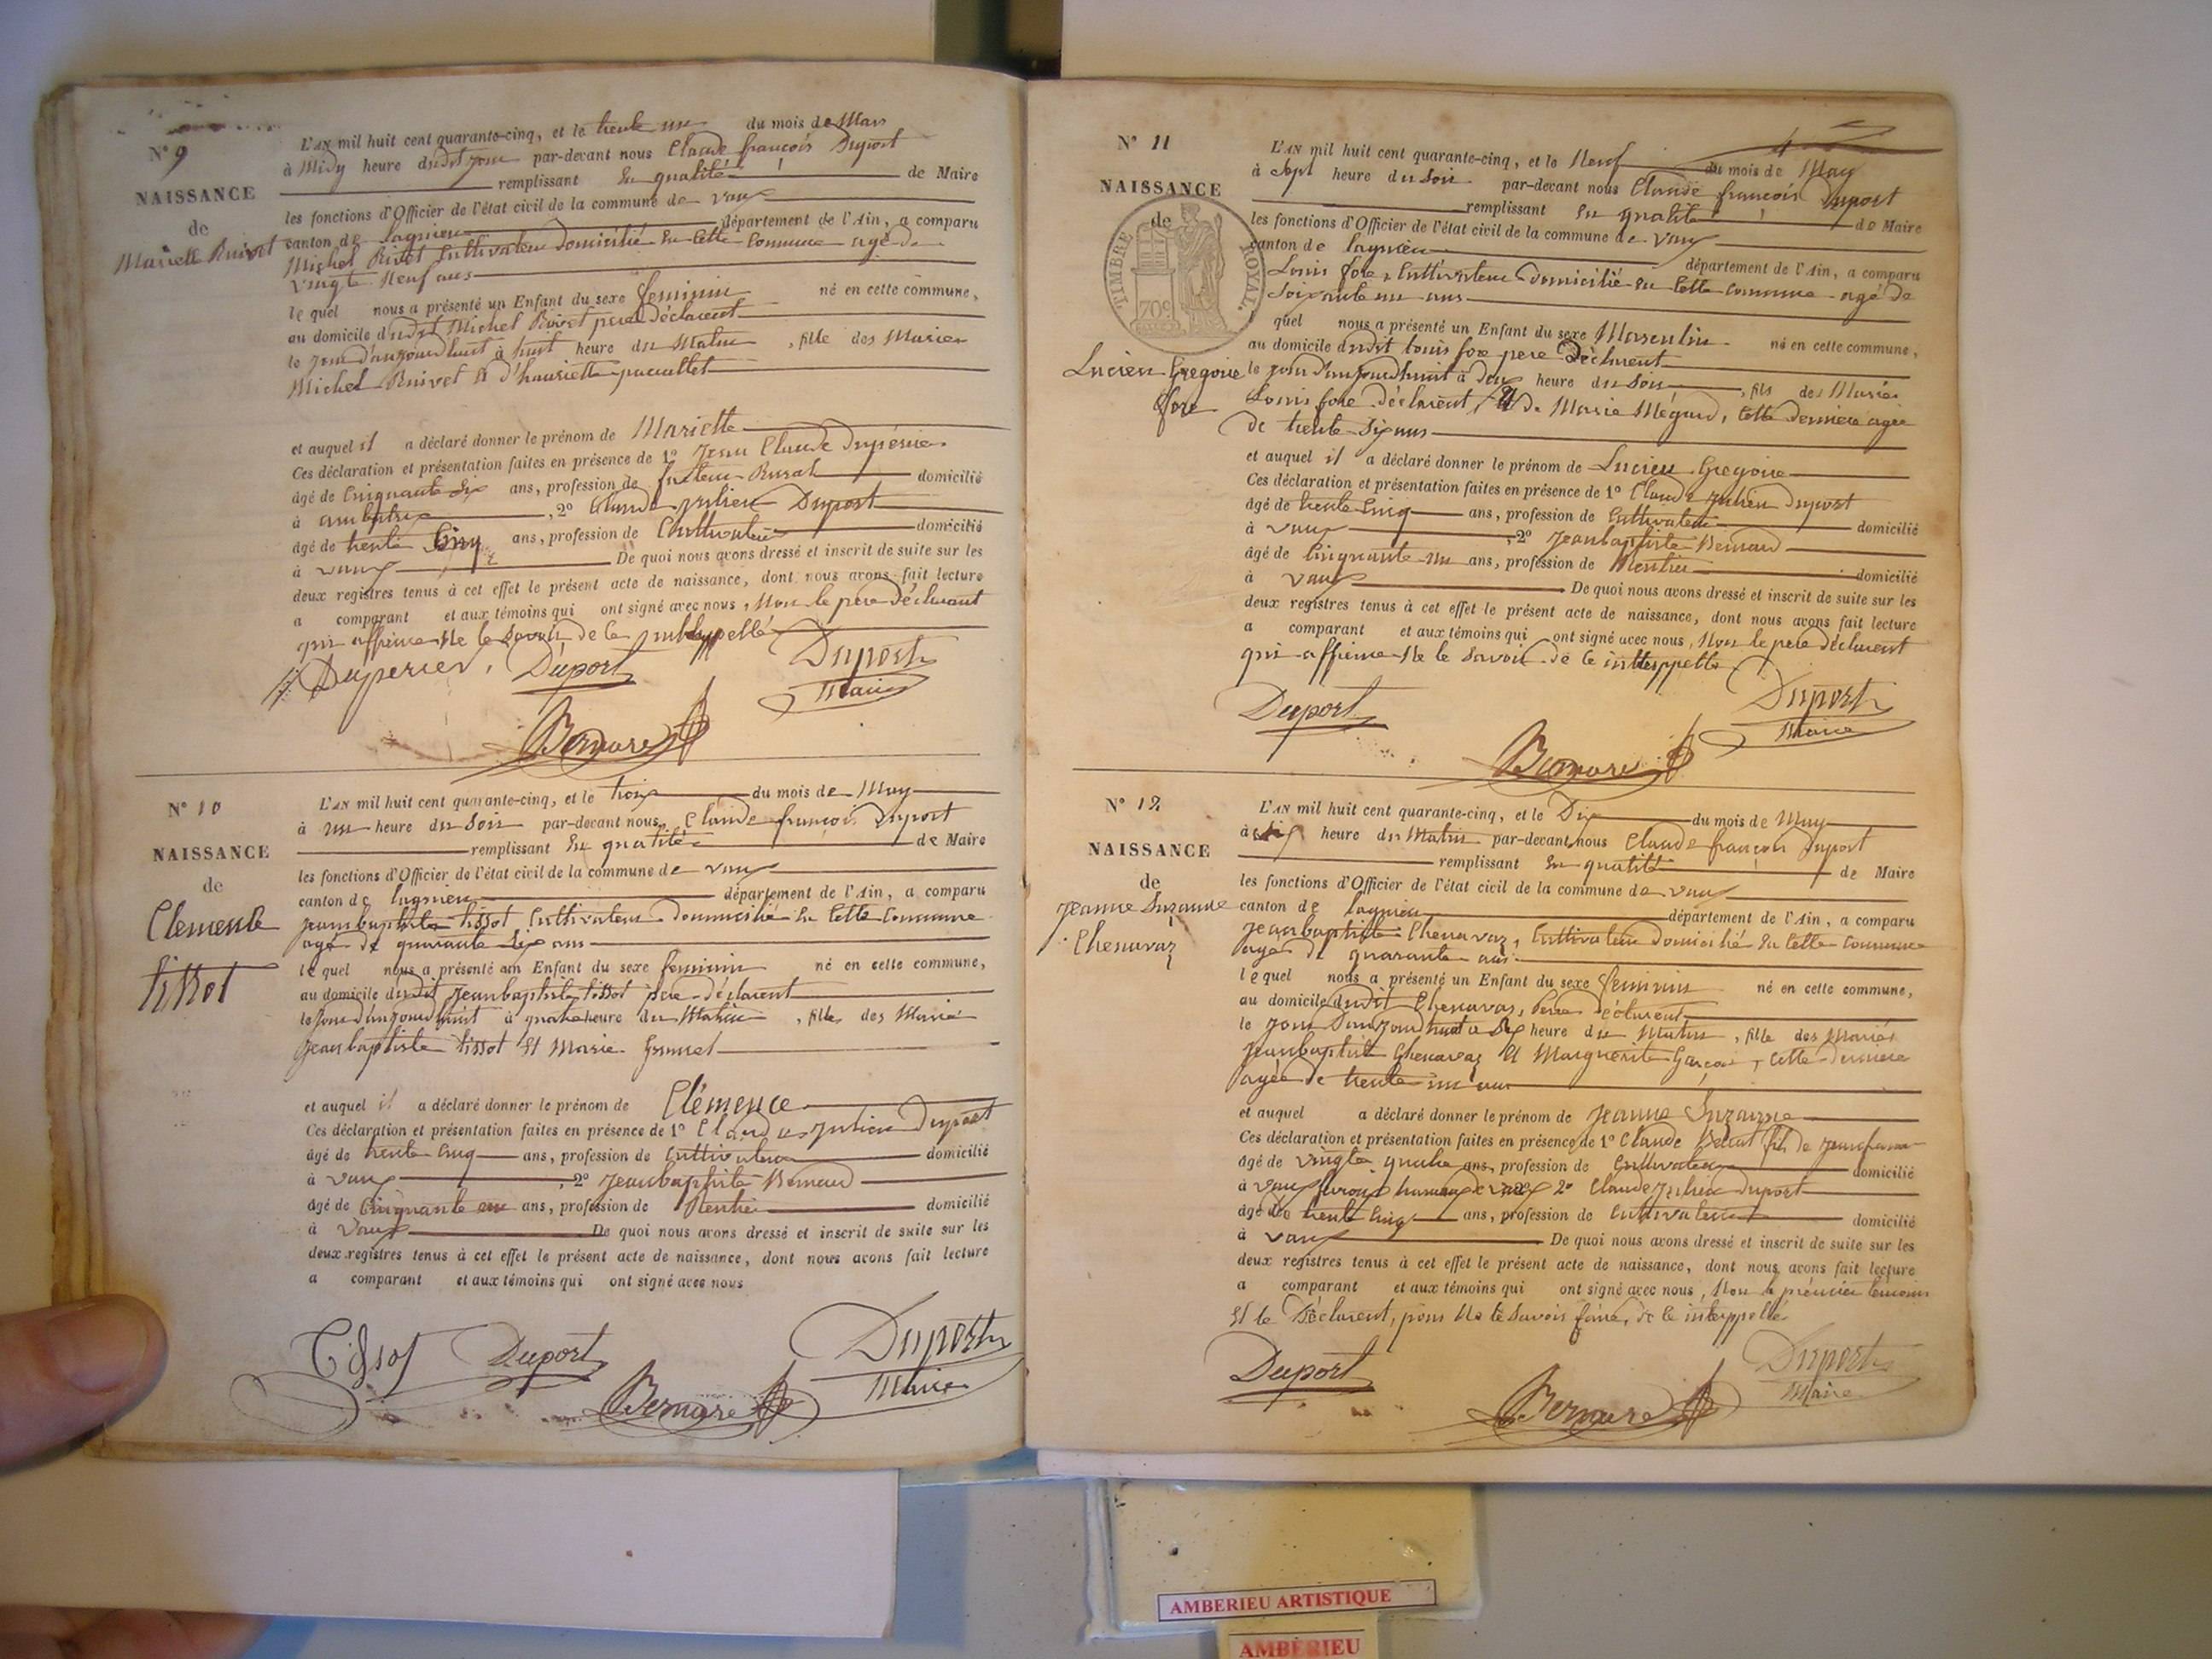 N° 9
NAISSANCE
de
Mariette Ruivet
L'AN mil huit cent quarante-cinq, et le trente un du mois de Mars
à Midy heure dudit jour par-devant nous Claude françois Duport
remplissant En qualité de Maire
les fonctions d'Officier de l'état civil de la commune de vaux
canton de lagnieu département de l'Ain, a comparu
Michel Ruivet Cultivateur domicilié En Cette Commune agé de
vingt Neuf ans
le quel nous a présenté un Enfant du sexe feminin né en cette commune,
au domicile dudit Michel Ruivet pere déclarent
le jour d'aujourdhuit à huit heure du Matin, fille des Mariés
Michel Ruivet & d'hauriette pacallet
et auquel il a déclaré donner le prénom de Mariette
Ces déclaration et présentation faites en présence de 1° Jean Claude Duperier
âgé de Cinquante Six ans, profession de facteur Rural domicilié
à ambutrix, 2° Claude julien Duport
âgé de trente Cinq ans, profession de Cultivateur domicilié
à vaux De quoi nous avons dressé et inscrit de suite sur les
deux registres tenus à cet effet le présent acte de naissance, dont nous avons fait lecture
a comparant et aux témoins qui ont signé avec nous, Non le pere déclarant
qui affirme Ne le Savoir de ce
Duperier, Duport Duport
Maire
Bernard
N° 10
NAISSANCE
de
Clemence
tissot
L'AN mil huit cent quarante-cinq, et le trois du mois de May
à un heure du Soir par-devant nous Claude françois Duport
remplissant En qualité de Maire
les fonctions d'Officier de l'état civil de la commune de vaux
canton de lagnieu département de l'Ain, a comparu
jeanbaptiste tissot Cultivateur domicilié En Cette Commune
agé de quarante Six ans
le quel nous a présenté un Enfant du sexe feminin né en cette commune,
au domicile dudit jeanbaptiste tissot pere déclarent
le jour d'aujourdhuit à quatre heure du Matin, fille des Mariés
jeanbaptiste tissot Et Marie
et auquel il a déclaré donner le prénom de Clémence
Ces déclaration et présentation faites en présence de 1° Claude julien Duport
âgé de trente Cinq ans, profession de Cultivateur domicilié
à vaux, 2° jeanbaptiste Bernard
âgé de Cinquante un ans, profession de Rentier domicilié
à vaux De quoi nous avons dressé et inscrit de suite sur les
deux registres tenus à cet effet le présent acte de naissance, dont nous avons fait lecture
a comparant et aux témoins qui ont signé avec nous
Tissot Duport Duport
Maire
Bernard
N° 11
NAISSANCE
de
TIMBRE ROYAL.
70c
Lucien Gregoire
fore
L'AN mil huit cent quarante-cinq, et le Neuf du mois de May
à Sept heure du Soir par-devant nous Claude françois Duport
remplissant En qualité de Maire
les fonctions d'Officier de l'état civil de la commune de vaux
canton de lagnieu département de l'Ain, a comparu
Louis fore, Cultivateur domicilié En Cette Commune agé de
Soixante un ans
quel nous a présenté un Enfant du sexe Masculin né en cette commune,
au domicile dudit louis fore pere Déclarent
le jour d'aujourdhuit à deux heure du Soir, fils des Mariés
Louis fore déclarent, & de Marie Mégard, Cette derniere agée
de trente Six ans
et auquel il a déclaré donner le prénom de Lucien Gregoire
Ces déclaration et présentation faites en présence de 1° Claude julien Duport
âgé de trente Cinq ans, profession de Cultivateur domicilié
à vaux, 2° jeanbaptiste Bernard
âgé de Cinquante un ans, profession de Rentier domicilié
à vaux De quoi nous avons dressé et inscrit de suite sur les
deux registres tenus à cet effet le présent acte de naissance, dont nous avons fait lecture
a comparant et aux témoins qui ont signé avec nous, Non le pere déclarent
qui affirme Ne le Savoir de ce
Duport Duport
Maire
Bernard
N° 12
NAISSANCE
de
Jeanne Suzanne
Chenavaz
L'AN mil huit cent quarante-cinq, et le Dix du mois de May
à heure du Matin par-devant nous Claude françois Duport
remplissant En qualité de Maire
les fonctions d'Officier de l'état civil de la commune de vaux
canton de lagnieu département de l'Ain, a comparu
jeanbaptiste Chenavaz, Cultivateur domicilié En Cette Commune
agé de quarante ans
le quel nous a présenté un Enfant du sexe feminin né en cette commune,
au domicile dudit Chenavas, Pere déclarent
le jour d'aujourdhuit à Six heure du Matin, fille des Mariés
jeanbaptiste Chenavaz Et Marguerite Garçon, Cette derniere
agée de trente un ans
et auquel a déclaré donner le prénom de Jeanne Suzanne
Ces déclaration et présentation faites en présence de 1° Claude fils de
âgé de vingt quatre ans, profession de Cultivateur domicilié
à vaux hameau de vaux 2° Claude julien Duport
âgé de trente Cinq ans, profession de Cultivateur domicilié
à vaux De quoi nous avons dressé et inscrit de suite sur les
deux registres tenus à cet effet le présent acte de naissance, dont nous avons fait lecture
a comparant et aux témoins qui ont signé avec nous, Non le prémier temoin
Et le Déclarent, pour Ne le Savoir faire, de ce interppellé
Duport Duport
Maire
Bernard
AMBERIEU ARTISTIQUE
AMBÉRIEU